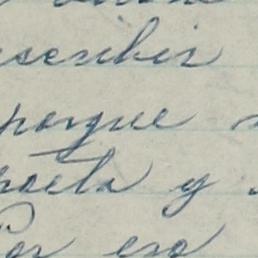 escribir
porque
poeta y
Por eso